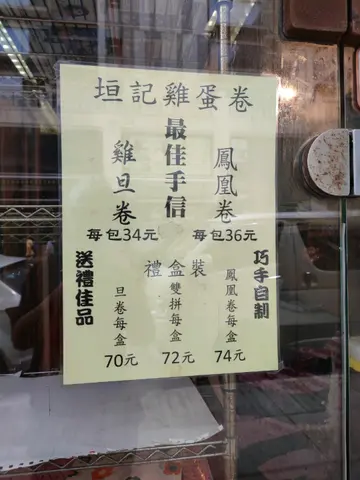 垣記雞蛋卷
最佳手信
雞旦卷
每包34元
鳳凰卷
每包36元
送禮佳品
巧手自制
禮盒裝
旦卷每盒
70元
雙拼每盒
72元
鳳凰卷每盒
74元